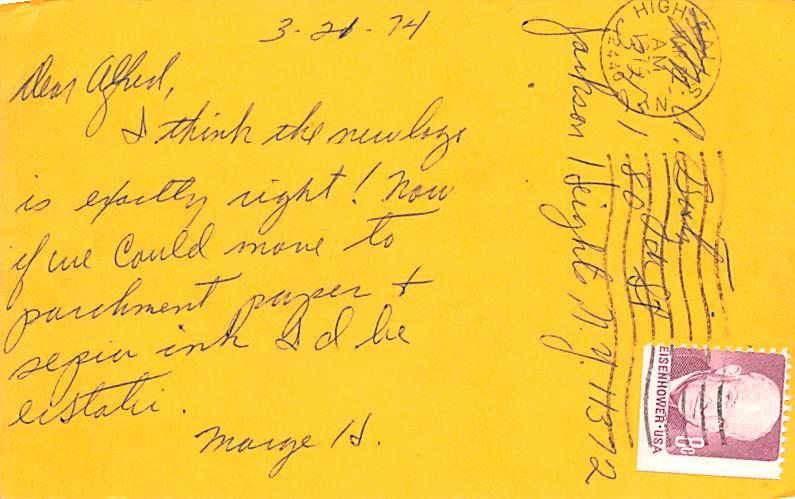 3-21-74
Dear Alfred,
I think the new logo
is exactly right! Now
if we could move to
parchment paper +
sepia ink I'd be
ecstatic.
Marge H.
80 St
Jackson Heights N.Y. 11372
HIGH
AM
EISENHOWER·USA
8c